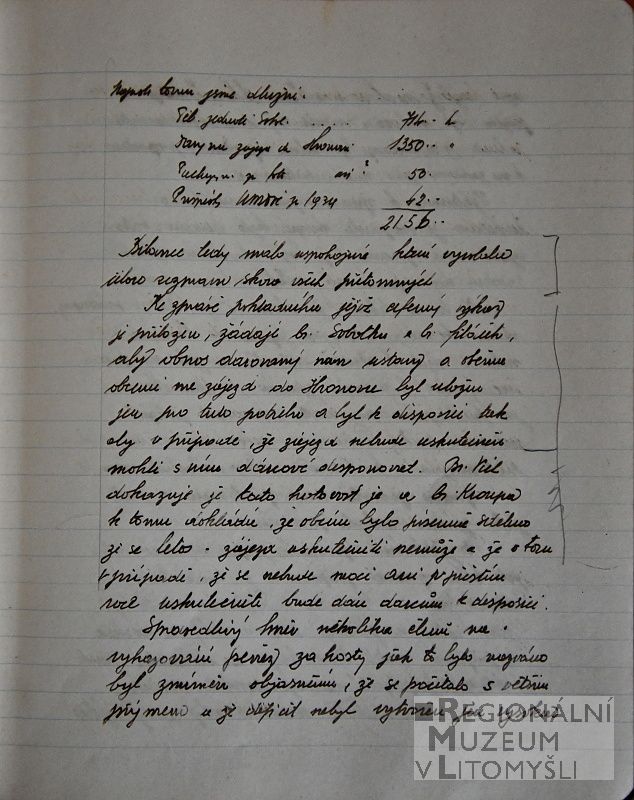 Naproti tomu jsme dlužni.
Těl. jednotě Sokol ..... 714.- k
na zájezd do Hronova 1350.- "
50.
Příspěvky ÚMDOČ za 1934 42.-
2156.-
Bilance tedy málo uspokojivé která vyvolala
skoro všech přítomných
Ke zprávě pokladního jejíž výkaz
je přiložen, žádají br. Sobotka a br.
aby obnos darovaný nám ústavy a oběma
obcemi na zájezd do Hronova byl uložen
jen pro tuto potřebu a byl k disposici tak
aby v případě, že zájezd nebude uskutečněn
mohli s ním dárcové disponovat. Br.
dokazuje že tato hotovost je a br. Kroupa
k tomu dokládá, že obcím bylo písemně sděleno
že se letos zájezd uskutečniti nemůže a že v tom
případě, že se nebude moci ani příštím
roce uskutečniti bude dán dárcům k disposici.
Spravedlivý hněv několika členů na
vyhazování peněz za hosty jak to bylo nazváno
byl zmírněn objasněním, že se počítalo s větším
příjmem a že deficit nebyl vytvořen jen
REGIONÁLNÍ
MUZEUM
V LITOMYŠLI